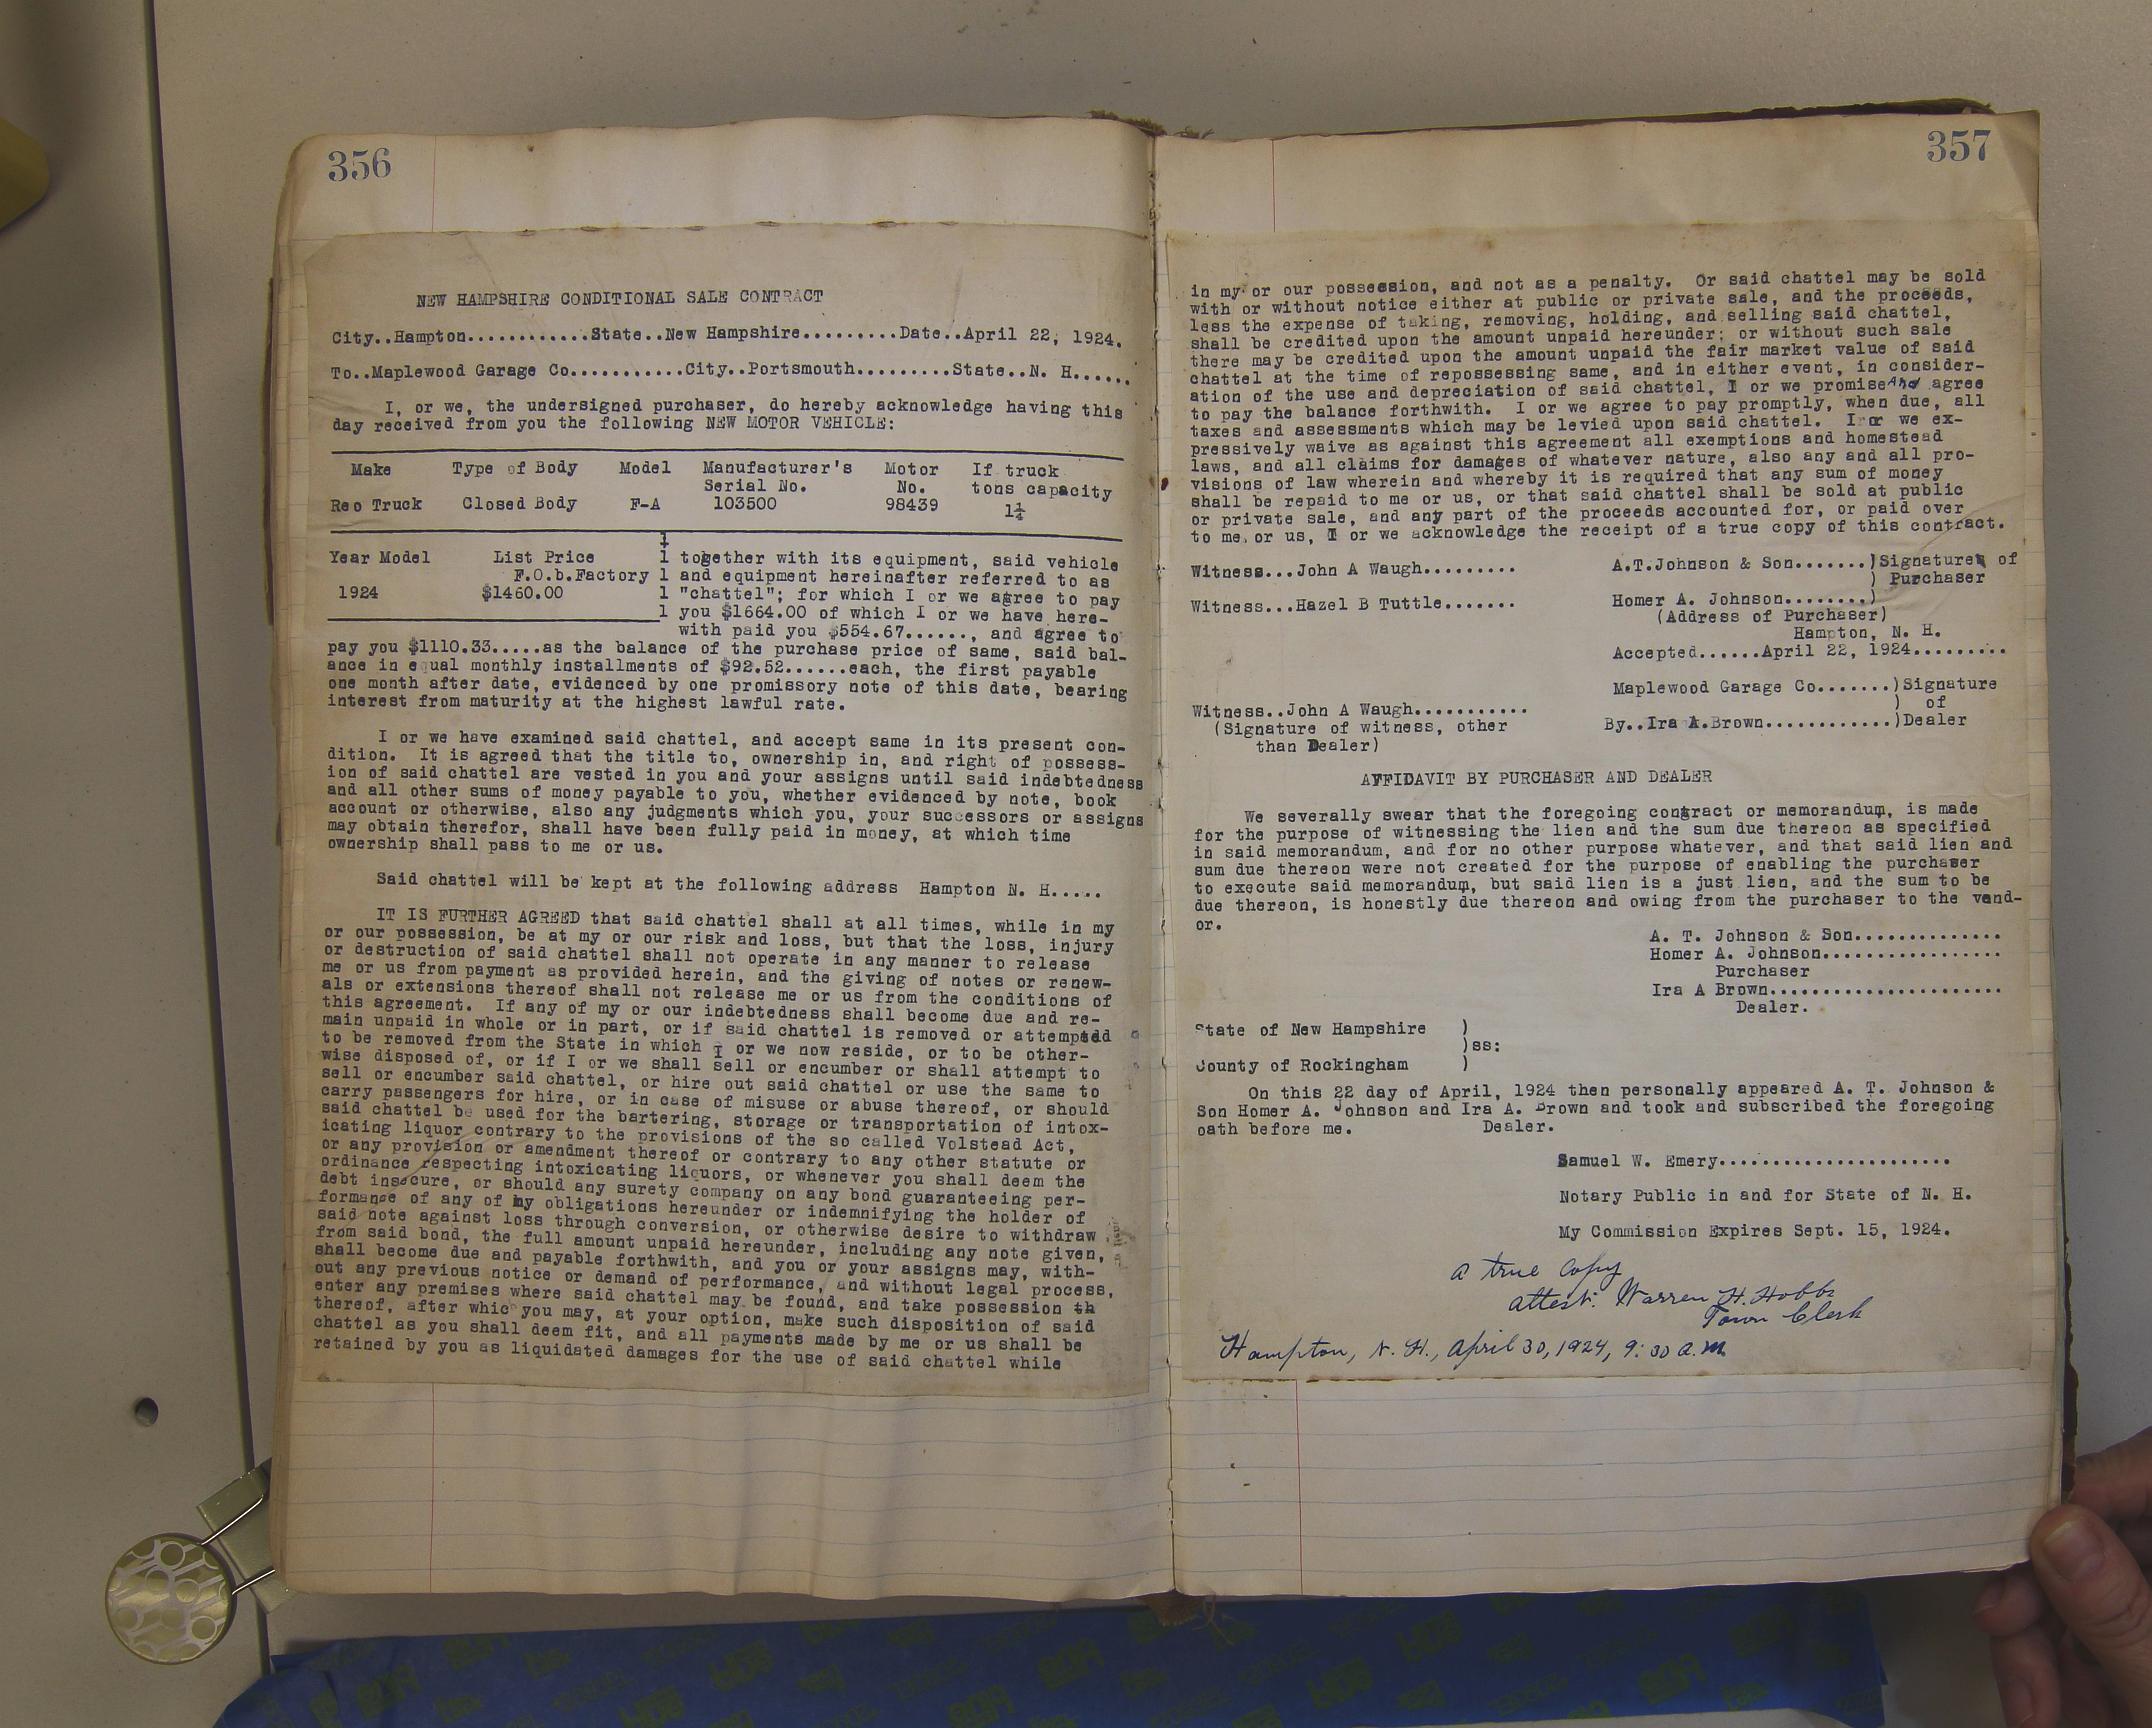 356
NEW HAMPSHIRE CONDITIONAL SALE CONTRACT
City..Hampton............State..New Hampshire.........Date..April 22, 1924.
To..Maplewood Garage Co...........City..Portsmouth.........State..N. H......
I, or we, the undersigned purchaser, do hereby acknowledge having this
day received from you the following NEW MOTOR VEHICLE:
Make Type of Body Model Manufacturer's Motor If truck
Serial No. No. tons capacity
Reo Truck Closed Body F-A 103500 98439 1¼
Year Model List Price 1 together with its equipment, said vehicle
F.O.b.Factory 1 and equipment hereinafter referred to as
1924 $1460.00 1 "chattel"; for which I or we agree to pay
1 you $1664.00 of which I or we have here-
with paid you $554.67......, and agree to
pay you $1110.33.....as the balance of the purchase price of same, said bal-
ance in equal monthly installments of $92.52......each, the first payable
one month after date, evidenced by one promissory note of this date, bearing
interest from maturity at the highest lawful rate.
I or we have examined said chattel, and accept same in its present con-
dition. It is agreed that the title to, ownership in, and right of possess-
ion of said chattel are vested in you and your assigns until said indebtedness
and all other sums of money payable to you, whether evidenced by note, book
account or otherwise, also any judgments which you, your successors or assigns
may obtain therefor, shall have been fully paid in money, at which time
ownership shall pass to me or us.
Said chattel will be kept at the following address Hampton N. H.....
IT IS FURTHER AGREED that said chattel shall at all times, while in my
or our possession, be at my or our risk and loss, but that the loss, injury
or destruction of said chattel shall not operate in any manner to release
me or us from payment as provided herein, and the giving of notes or renew-
als or extensions thereof shall not release me or us from the conditions of
this agreement. If any of my or our indebtedness shall become due and re-
main unpaid in whole or in part, or if said chattel is removed or attempted
to be removed from the State in which I or we now reside, or to be other-
wise disposed of, or if I or we shall sell or encumber or shall attempt to
sell or encumber said chattel, or hire out said chattel or use the same to
carry passengers for hire, or in case of misuse or abuse thereof, or should
said chattel be used for the bartering, storage or transportation of intox-
icating liquor contrary to the provisions of the so called Volstead Act,
or any provision or amendment thereof or contrary to any other statute or
ordinance respecting intoxicating liquors, or whenever you shall deem the
debt insecure, or should any surety company on any bond guaranteeing per-
formance of any of my obligations hereunder or indemnifying the holder of
said note against loss through conversion, or otherwise desire to withdraw
from said bond, the full amount unpaid hereunder, including any note given,
shall become due and payable forthwith, and you or your assigns may, with-
out any previous notice or demand of performance, and without legal process,
enter any premises where said chattel may be found, and take possession th
thereof, after which you may, at your option, make such disposition of said
chattel as you shall deem fit, and all payments made by me or us shall be
retained by you as liquidated damages for the use of said chattel while
357
in my or our possession, and not as a penalty. Or said chattel may be sold
with or without notice either at public or private sale, and the proceeds,
less the expense of taking, removing, holding, and selling said chattel,
shall be credited upon the amount unpaid hereunder; or without such sale
there may be credited upon the amount unpaid the fair market value of said
chattel at the time of repossessing same, and in either event, in consider-
ation of the use and depreciation of said chattel, I or we promise And agree
to pay the balance forthwith. I or we agree to pay promptly, when due, all
taxes and assessments which may be levied upon said chattel. I or we ex-
pressively waive as against this agreement all exemptions and homestead
laws, and all claims for damages of whatever nature, also any and all pro-
visions of law wherein and whereby it is required that any sum of money
shall be repaid to me or us, or that said chattel shall be sold at public
or private sale, and any part of the proceeds accounted for, or paid over
to me or us, I or we acknowledge the receipt of a true copy of this contract.
Witness...John A Waugh......... A.T.Johnson & Son.......)Signature of
) Purchaser
Witness...Hazel B Tuttle....... Homer A. Johnson........)
(Address of Purchaser)
Hampton, N. H.
Accepted......April 22, 1924.........
Maplewood Garage Co.......)Signature
) of
Witness..John A Waugh........... By..Ira A.Brown............)Dealer
(Signature of witness, other
than Dealer)
AFFIDAVIT BY PURCHASER AND DEALER
We severally swear that the foregoing contract or memorandum, is made
for the purpose of witnessing the lien and the sum due thereon as specified
in said memorandum, and for no other purpose whatever, and that said lien and
sum due thereon were not created for the purpose of enabling the purchaser
to execute said memorandum, but said lien is a just lien, and the sum to be
due thereon, is honestly due thereon and owing from the purchaser to the vend-
or.
A. T. Johnson & Son..............
Homer A. Johnson.................
Purchaser
Ira A Brown......................
Dealer.
State of New Hampshire )
)ss:
County of Rockingham )
On this 22 day of April, 1924 then personally appeared A. T. Johnson &
Son Homer A. Johnson and Ira A. Brown and took and subscribed the foregoing
oath before me. Dealer.
Samuel W. Emery......................
Notary Public in and for State of N. H.
My Commission Expires Sept. 15, 1924.
A true copy
attest: Warren H. Hobbs
Town Clerk
Hampton, N. H., April 30, 1924, 9:30 a.m.